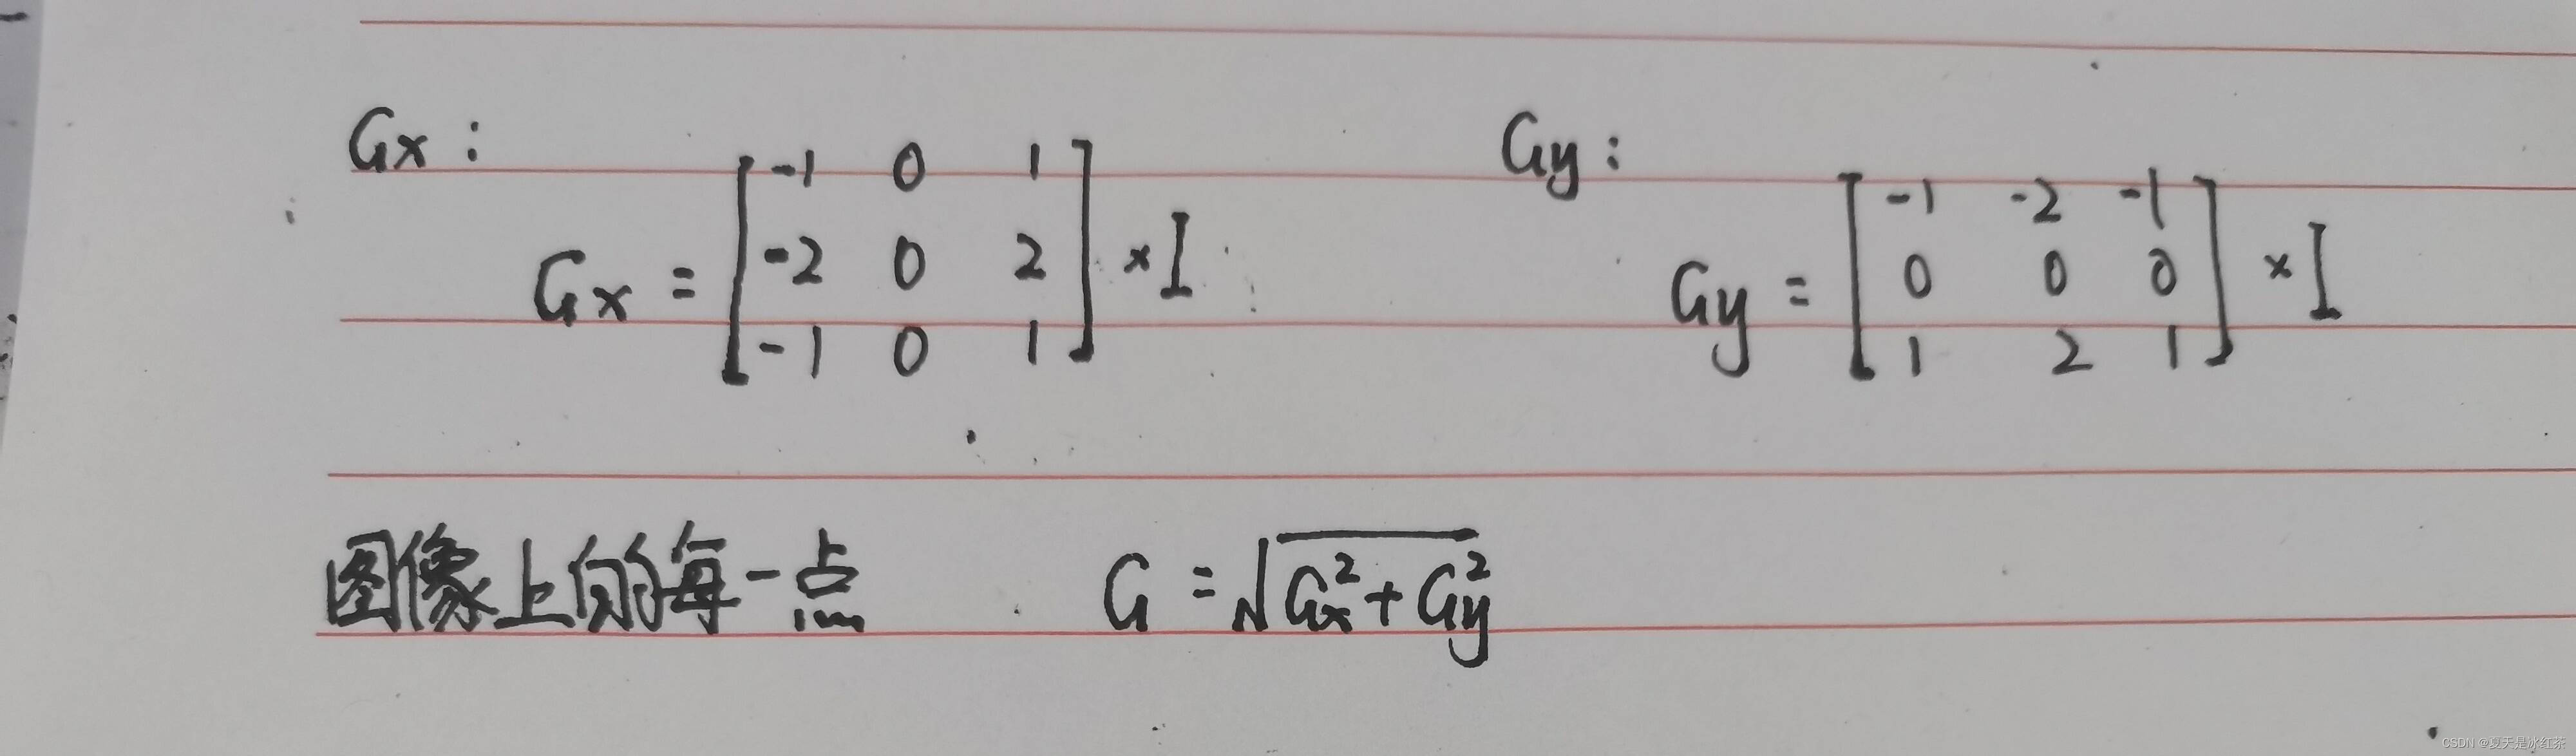 Gx: Gy:
Gx = [ -1 0 1 ; -2 0 2 ; -1 0 1 ] × I Gy = [ -1 -2 -1 ; 0 0 0 ; 1 2 1 ] × I
图像上的每一点 G = √(Gx² + Gy²)
CSDN @夏天是冰红茶